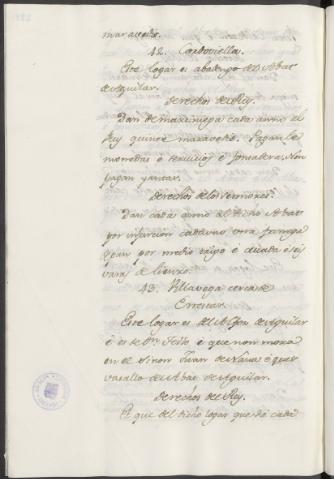 maravedis.
42. Cordovilla.
Este logar es abadengo del Abat
de Aguilar.
Derechos del Rey.
Dan de martiniega cada anno al
Rey quince maravedis. Pagan le
monedas è servicios è fonsadera. Non
pagan yantar.
Derechos de los sennores.
Dan cada anno al dicho Abat
por infurcion cada uno una fanega
pan por medio trigo è cevada è seis
varas de lienzo.
43. Villavega cerca de
Este logar es del Abat de Aguilar
è es de Tello è que non mora
en el sinon Juan de Nava è que es
vasallo del Abat de Aguilar.
Derechos del Rey.
El que del dicho logar que dè cada